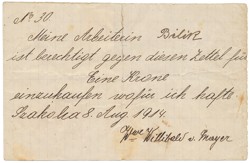 No. 30.
Meine Arbeiterin Bilik
ist berechtigt gegen diesen Zettel für
Eine Krone
einzukaufen wofür ich hafte
Szakolca 8. Aug. 1914.
Wwe Willibald v. Mayer